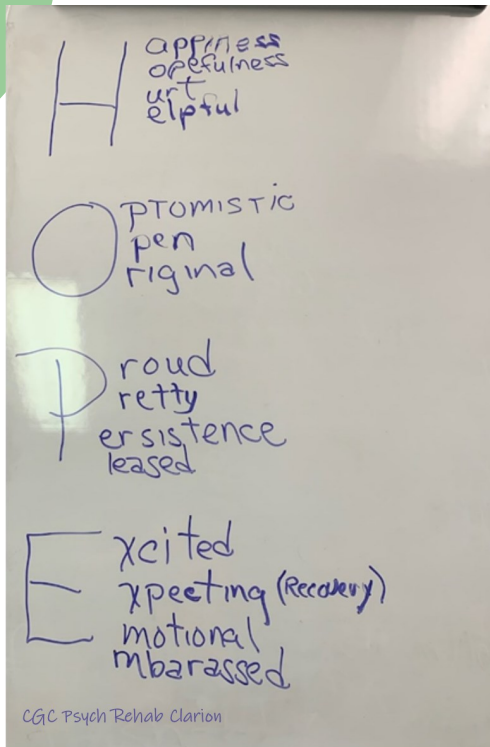 Happiness
opefulness
urt
elpful
OPTOMISTIC
pen
riginal
Proud
retty
ersistence
leased
Excited
xpecting (Recovery)
motional
mbarassed
CGC Psych Rehab Clarion